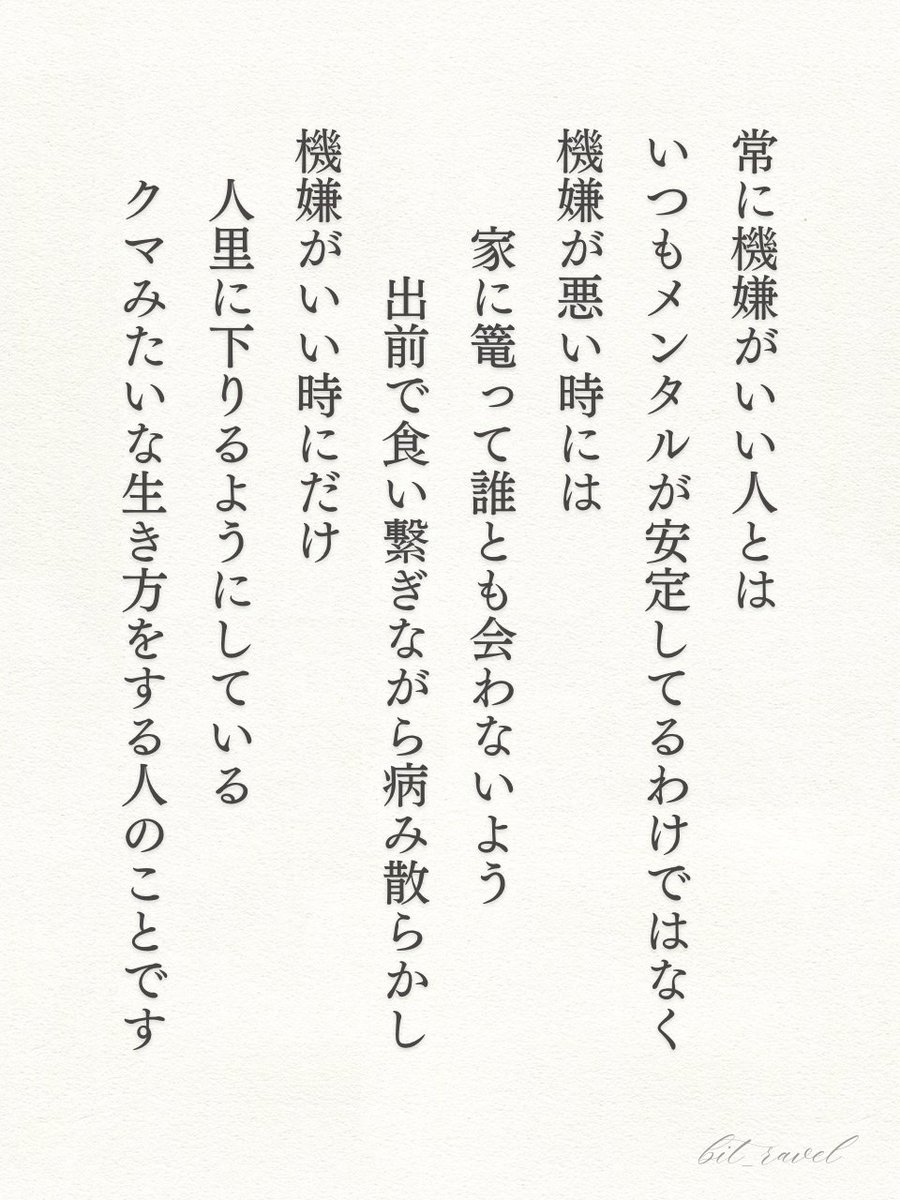 常に機嫌がいい人とは
いつもメンタルが安定してるわけではなく
機嫌が悪い時には
家に篭って誰とも会わないよう
出前で食い繋ぎながら病み散らかし
機嫌がいい時にだけ
人里に下りるようにしている
クマみたいな生き方をする人のことです
bit_ravel